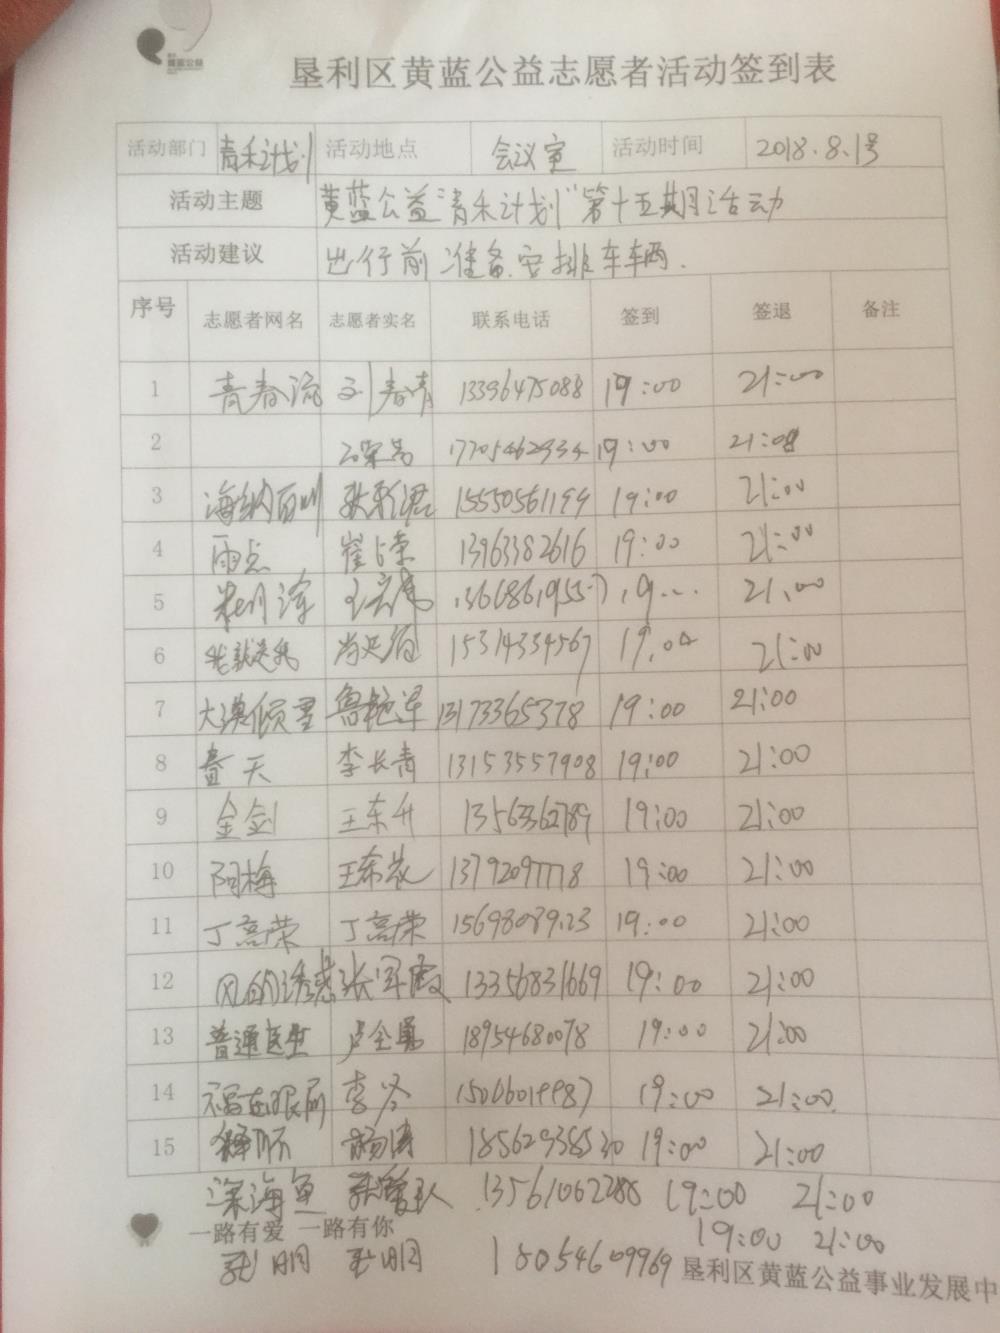 黄蓝公益
垦利区黄蓝公益志愿者活动签到表
活动部门 青禾计划 活动地点 会议室 活动时间 2018.8.1号
活动主题 黄蓝公益"青禾计划"第十五期活动
活动建议 出行前准备安排车辆.
序号 志愿者网名 志愿者实名 联系电话 签到 签退 备注
1 青春流 刘春青 13396475088 19:00 21:00
2 19:00
3 海纳百川 15550561199 19:00 21:00
4 雨点 崔占荣 13963382616 19:00 21:00
5 21.00
6 我就是我 15314334567 21:00
7 大漠倾雪 鲁艳军 13173365378 19:00 21:00
8 春天 李长青 13153557908 19:00 21:00
9 金剑 王东升 13563362789 19:00 21:00
10 阿梅 13792097778 19:00 21:00
11 丁高荣 丁高荣 19:00 21:00
12 风的诱惑 张军霞 13356831669 19:00 21:00
13 普通医生 卢全勇 18954680078 19:00 21:00
14 李冬 19:00 21:00
15 杨涛 18562938530 19:00 21:00
深海鱼 13561062288 19:00 21:00
一路有爱 一路有你 19:00 21:00
18054609969 垦利区黄蓝公益事业发展中